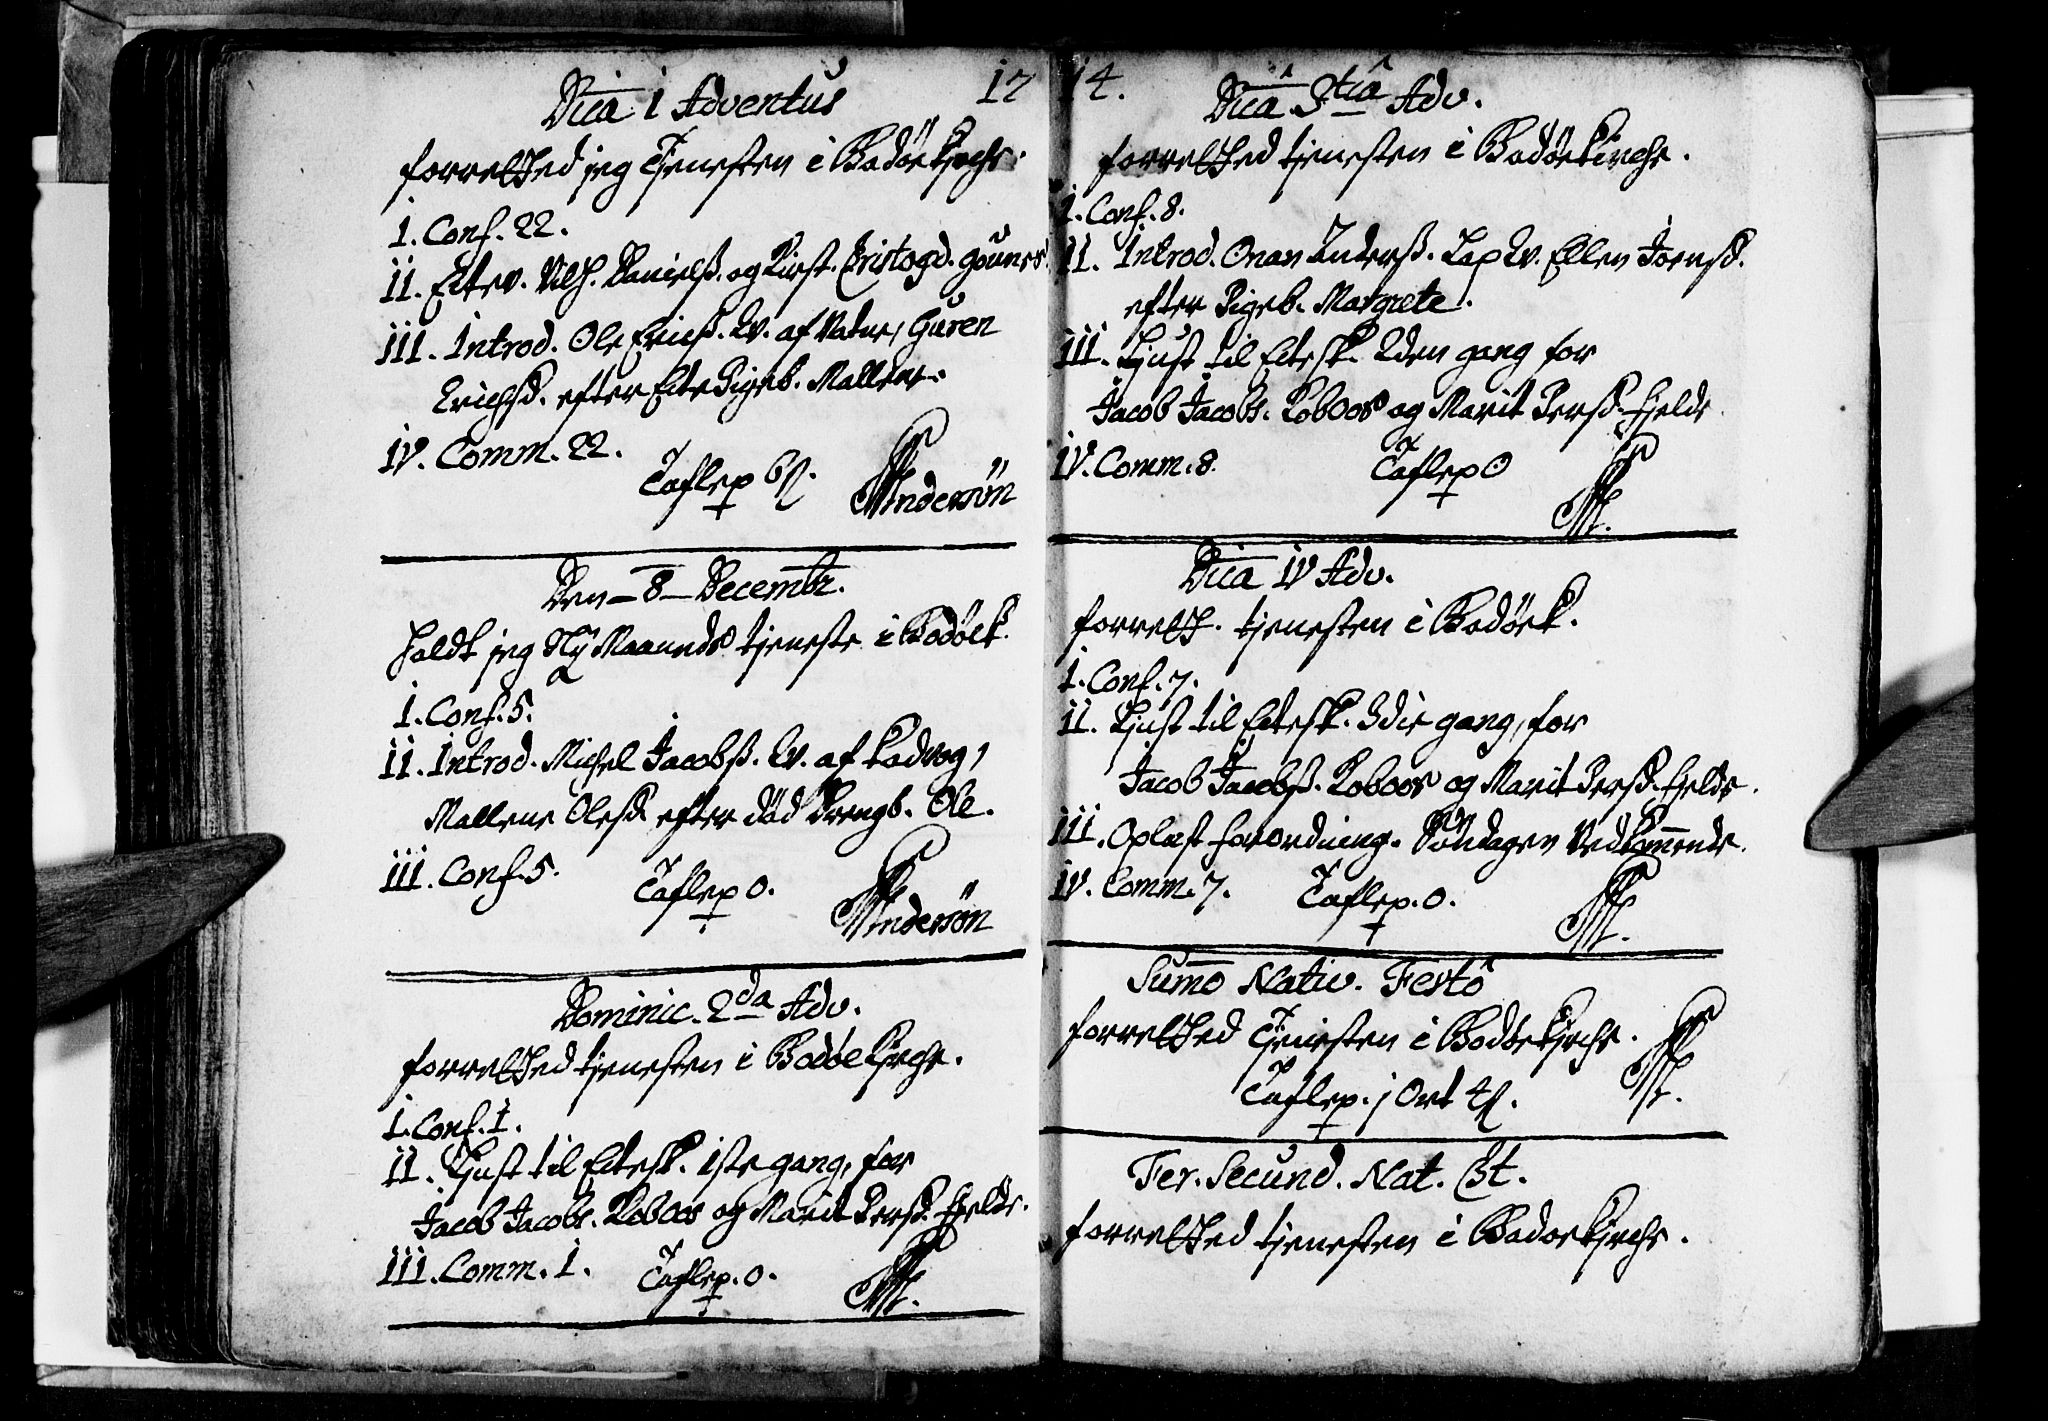 Dnica 1 Adventus
forrettsed jeg Tjenesten i Bodöe Kjrche.
1. Conf. 22.
ii. Ectev. Nils Danielß. og Kirst. Cristogd.
iii. Introd. Ole Erichß. Qv. af Natne, Guren
Erichsd. efter Ecte Pigeb. Mallene.
iv. Comm. 22.
Taflep 6ß. Andersön
Den 8 Decembr.
Holdt jeg Ny Maaneds tjeneste i Bodöe K.
1. Conf. 5.
ii. Introd. Michel Jacobß. Qv. af
Mallene Olesd. efter död Drengb. Ole.
iii. Conf. 5. Taflep 0.
Andersön
Dominic. 2da Adv.
forrettsed tjenesten i Bodöe Kjrche.
1. Conf. 1.
ii. Ljust til Ectesk. 1ste gang, for
Jacob Jacobs. Roboos og Marit Persd. Fjelde.
iii. Comm. 1. Taflep. 0.
1714.
Dnicâ 3tiâ Adv.
forrettsed tjenesten i Bodöe Kirche.
1. Conf. 8.
ii. Introd. Onan Anderß. Lap Qv. Ellen Joensd.
efter Pigeb. Margrete.
iii. Ljust til Ectesk. 2den gang for
Jacob Jacobs. Roboos og Marit Persd. Fjelde
iv. Comm. 8. Taflep 0
Dnica iv Adv.
forretts. tjenesten i Bodöe K.
1. Conf. 7.
ii. Ljust til Ectesk. 3die gang, for
Jacob Jacobß. Roboos og Marit Persd. Fjelde.
iii. Oplæst forordning. om Söndagen Vedkommende.
iv. Comm. 7. Taflep. 0.
Summo Nativ. Festô
forrettsed Tjenesten i Bodöe Kjrche.
Taflep. j Ort 4ß.
Fer. Secund. Nat. Xt.
forrettsed tjenesten i Bodöe Kjrche.